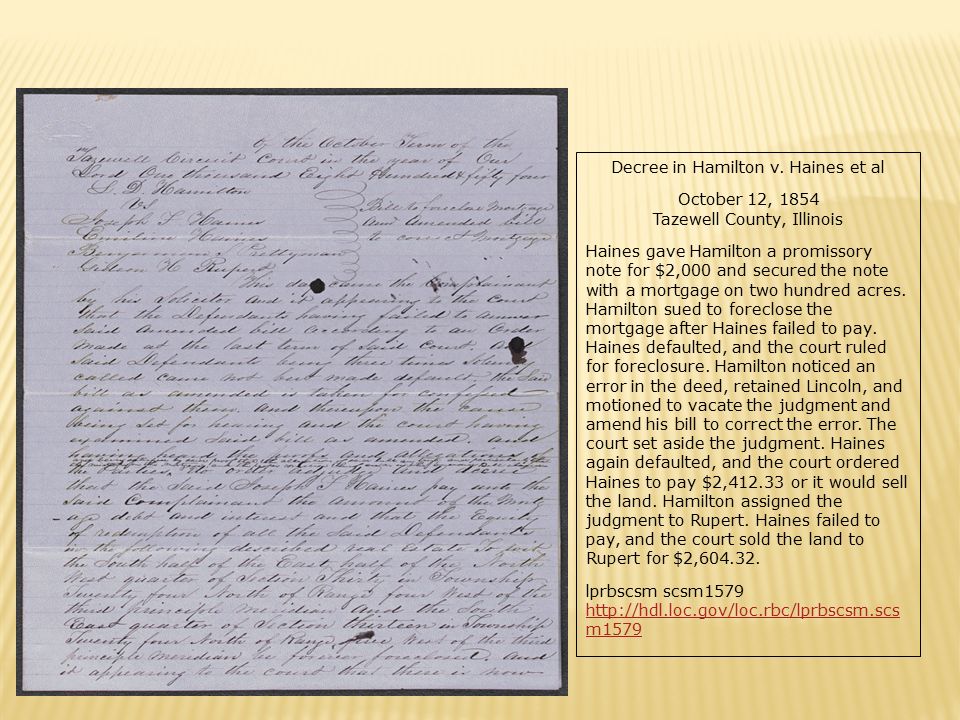 of the October Term of the
Tazewell Circuit Court in the year of Our
Lord One thousand Eight Hundred & fifty four
L. D. Hamilton
vs
Joseph F Haines
Emiline Haines
Benjamin Prettyman
Gideon H Rupert
Bill to foreclose Mortgage
and Amended bill
to correct Mortgage
This day came the Complainant
by his Solicitor and it appearing to the Court
that the Defendants having failed to answer
said amended bill according to an Order
made at the last term of said Court. And
said Defendants being three times Solemnly
called came not but made default, the said
bill as amended is taken for confessed
against them. and thereupon the cause
being set for hearing and the court having
examined said bill as amended. and
having heard the proofs and allegations
that the said Joseph F Haines pay unto the
said Complainant the amount of the Mort
-age debt and interest and that the Equity
of redemption of all the said Defendants
in the following described real Estate To wit
the South half of the East half of the North
West quarter of Section Thirty in Township
Twenty four North of Range four West of the
third principle Meridian and the South
East quarter of Section thirteen in Township
Twenty four North of Range five West of the third
principle meridian be forever foreclosed. And
it appearing to the court that there is now
Decree in Hamilton v. Haines et al
October 12, 1854
Tazewell County, Illinois
Haines gave Hamilton a promissory
note for $2,000 and secured the note
with a mortgage on two hundred acres.
Hamilton sued to foreclose the
mortgage after Haines failed to pay.
Haines defaulted, and the court ruled
for foreclosure. Hamilton noticed an
error in the deed, retained Lincoln, and
motioned to vacate the judgment and
amend his bill to correct the error. The
court set aside the judgment. Haines
again defaulted, and the court ordered
Haines to pay $2,412.33 or it would sell
the land. Hamilton assigned the
judgment to Rupert. Haines failed to
pay, and the court sold the land to
Rupert for $2,604.32.
lprbscsm scsm1579
http://hdl.loc.gov/loc.rbc/lprbscsm.scs
m1579